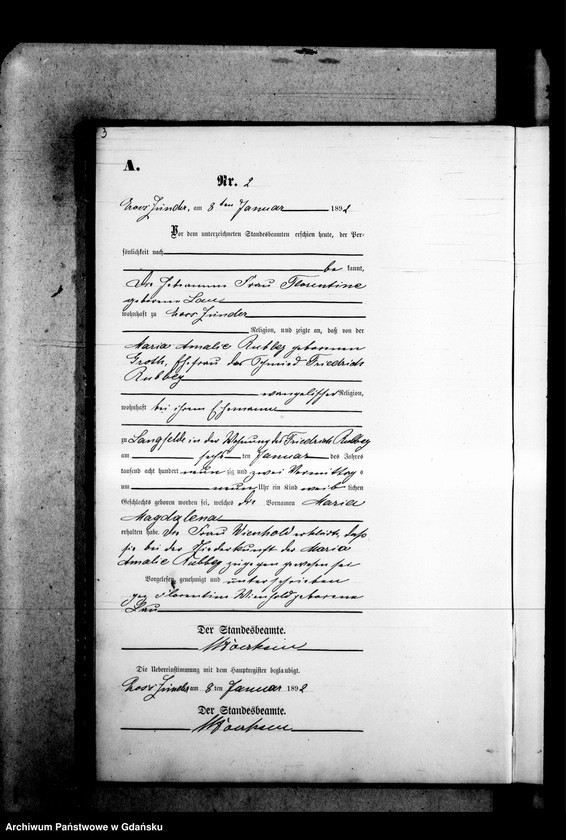 3
A.
Nr. 2
Gross Zünder, am 8 ten Januar 1892
Vor dem unterzeichneten Standesbeamten erschien heute, der Per-
sönlichkeit nach
be kannt,
die Hebamme Frau Florentine
geborene Lau
wohnhaft zu Gross Zünder
Religion, und zeigte an, daß von der
Maria Amalie Rubbey geborenen
Groth, Ehefrau des Schmied Friedrich
Rubbey
evangelischer Religion,
wohnhaft bei ihrem Ehemanne
zu Langfelde in der Wohnung des Friedrich Rubbey
am sechs ten Januar des Jahres
tausend acht hundert neun zig und zwei Vormittags
um neun Uhr ein Kind weib lichen
Geschlechts geboren worden sei, welches die Vornamen Maria
Magdalena
erhalten habe. Die Frau Wienhold erklärt, daß
sie bei der Niederkunft der Maria
Amalie Rubbey zugegen gewesen sei
Vorgelesen, genehmigt und unterschrieben
gez. Florentine Wienhold geborene
Lau
Der Standesbeamte.
Die Uebereinstimmung mit dem Hauptregister beglaubigt.
Gross Zünder am 8 ten Januar 1892
Der Standesbeamte.
Archiwum Państwowe w Gdańsku